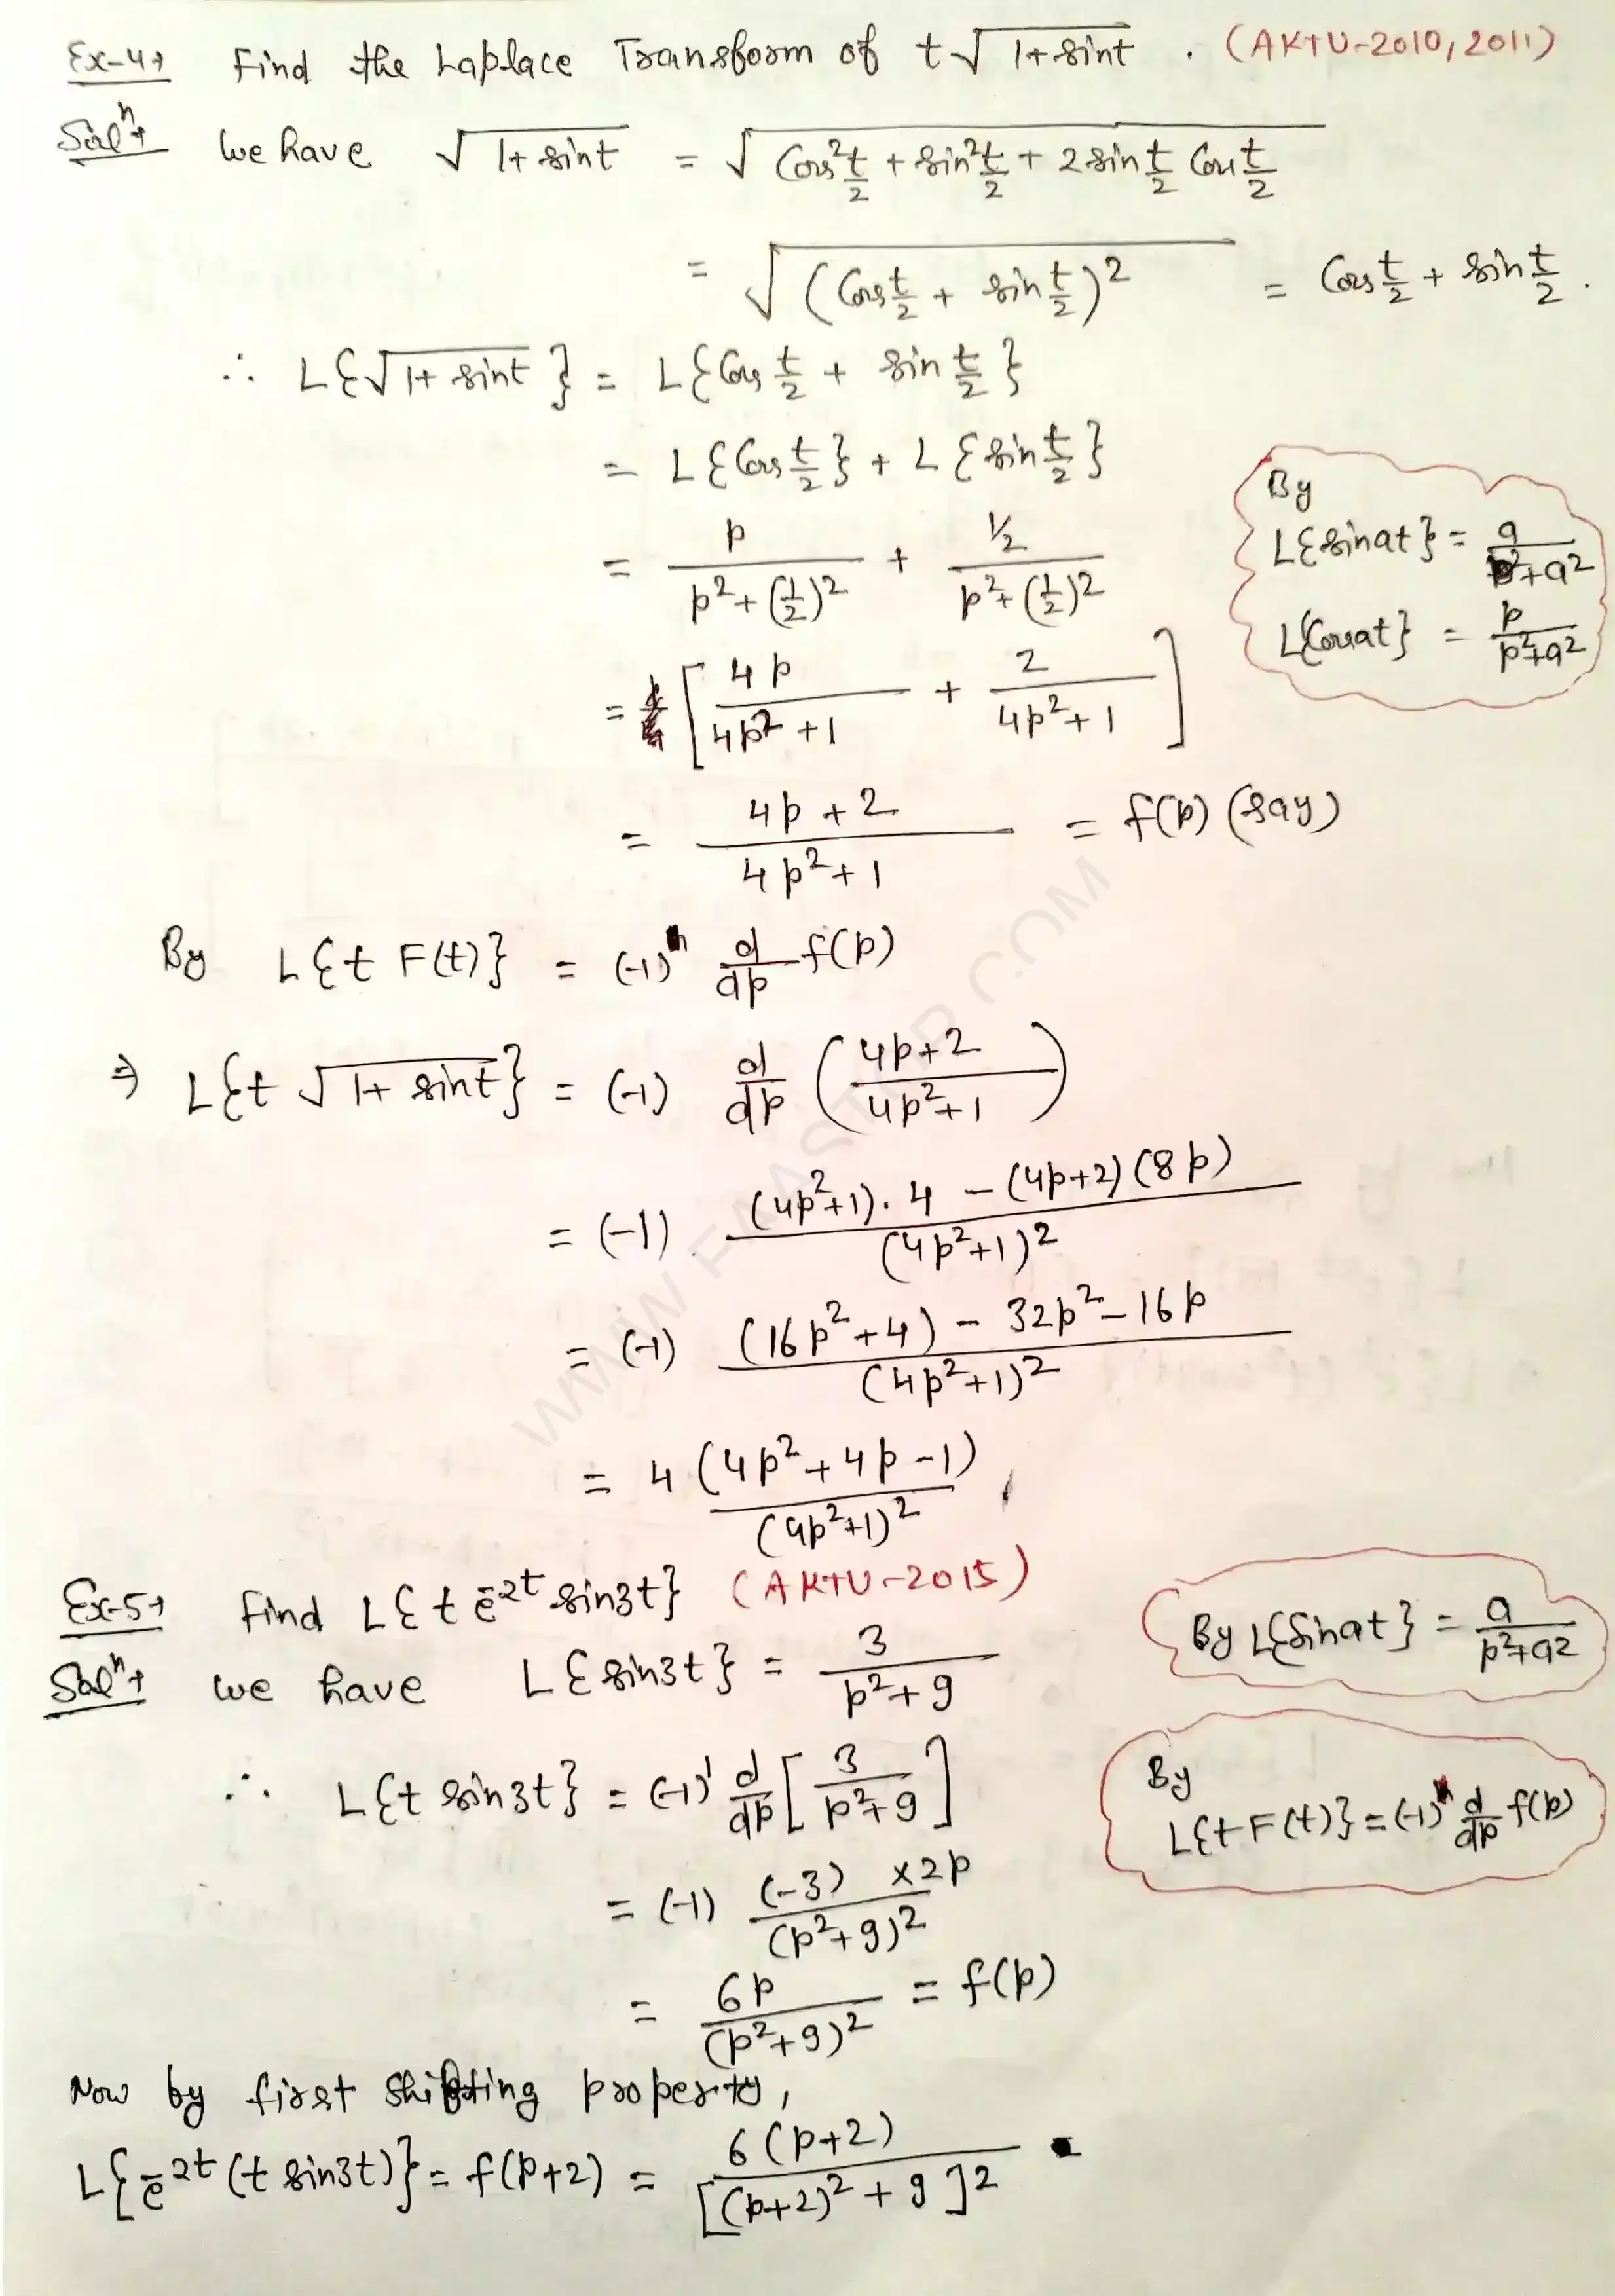 Ex-4→ Find the Laplace Transform of t√(1+sint) . (AKTU-2010, 2011)
Solⁿ→ We have √(1+sint) = √(Cos²t/2 + sin²t/2 + 2 sin t/2 Cos t/2)
= √((Cos t/2 + sin t/2)²) = Cos t/2 + sin t/2 .
∴ L{√(1+sint)} = L{Cos t/2 + sin t/2}
= L{Cos t/2} + L{sin t/2}
= p/(p²+(1/2)²) + ½/(p²+(1/2)²)
By
L{sinat} = a/(p²+a²)
L{cosat} = p/(p²+a²)
= [4p/(4p²+1) + 2/(4p²+1)]
= (4p+2)/(4p²+1) = f(p) (say)
By L{t F(t)} = (-1)ⁿ d/dp f(p)
⇒ L{t √(1+sint)} = (-1) d/dp ((4p+2)/(4p²+1))
= (-1) ((4p²+1).4 - (4p+2)(8p))/(4p²+1)²
= (-1) ((16p²+4) - 32p² - 16p)/(4p²+1)²
= 4(4p²+4p-1)/(4p²+1)² ,
Ex-5→ Find L{t e⁻²ᵗ sin3t} (AKTU-2015)
Solⁿ→ We have L{sin3t} = 3/(p²+9)
By L{Sinat} = a/(p²+a²)
∴ L{t sin3t} = (-1)¹ d/dp [3/(p²+9)]
By
L{tF(t)} = (-1)ⁿ d/dp f(p)
= (-1) (-3) ×2p/(p²+9)²
= 6p/(p²+9)² = f(p)
Now by first shifting property,
L{e⁻²ᵗ(t sin3t)} = f(p+2) = 6(p+2)/[(p+2)²+9]²
WWW.FAASTUP.COM